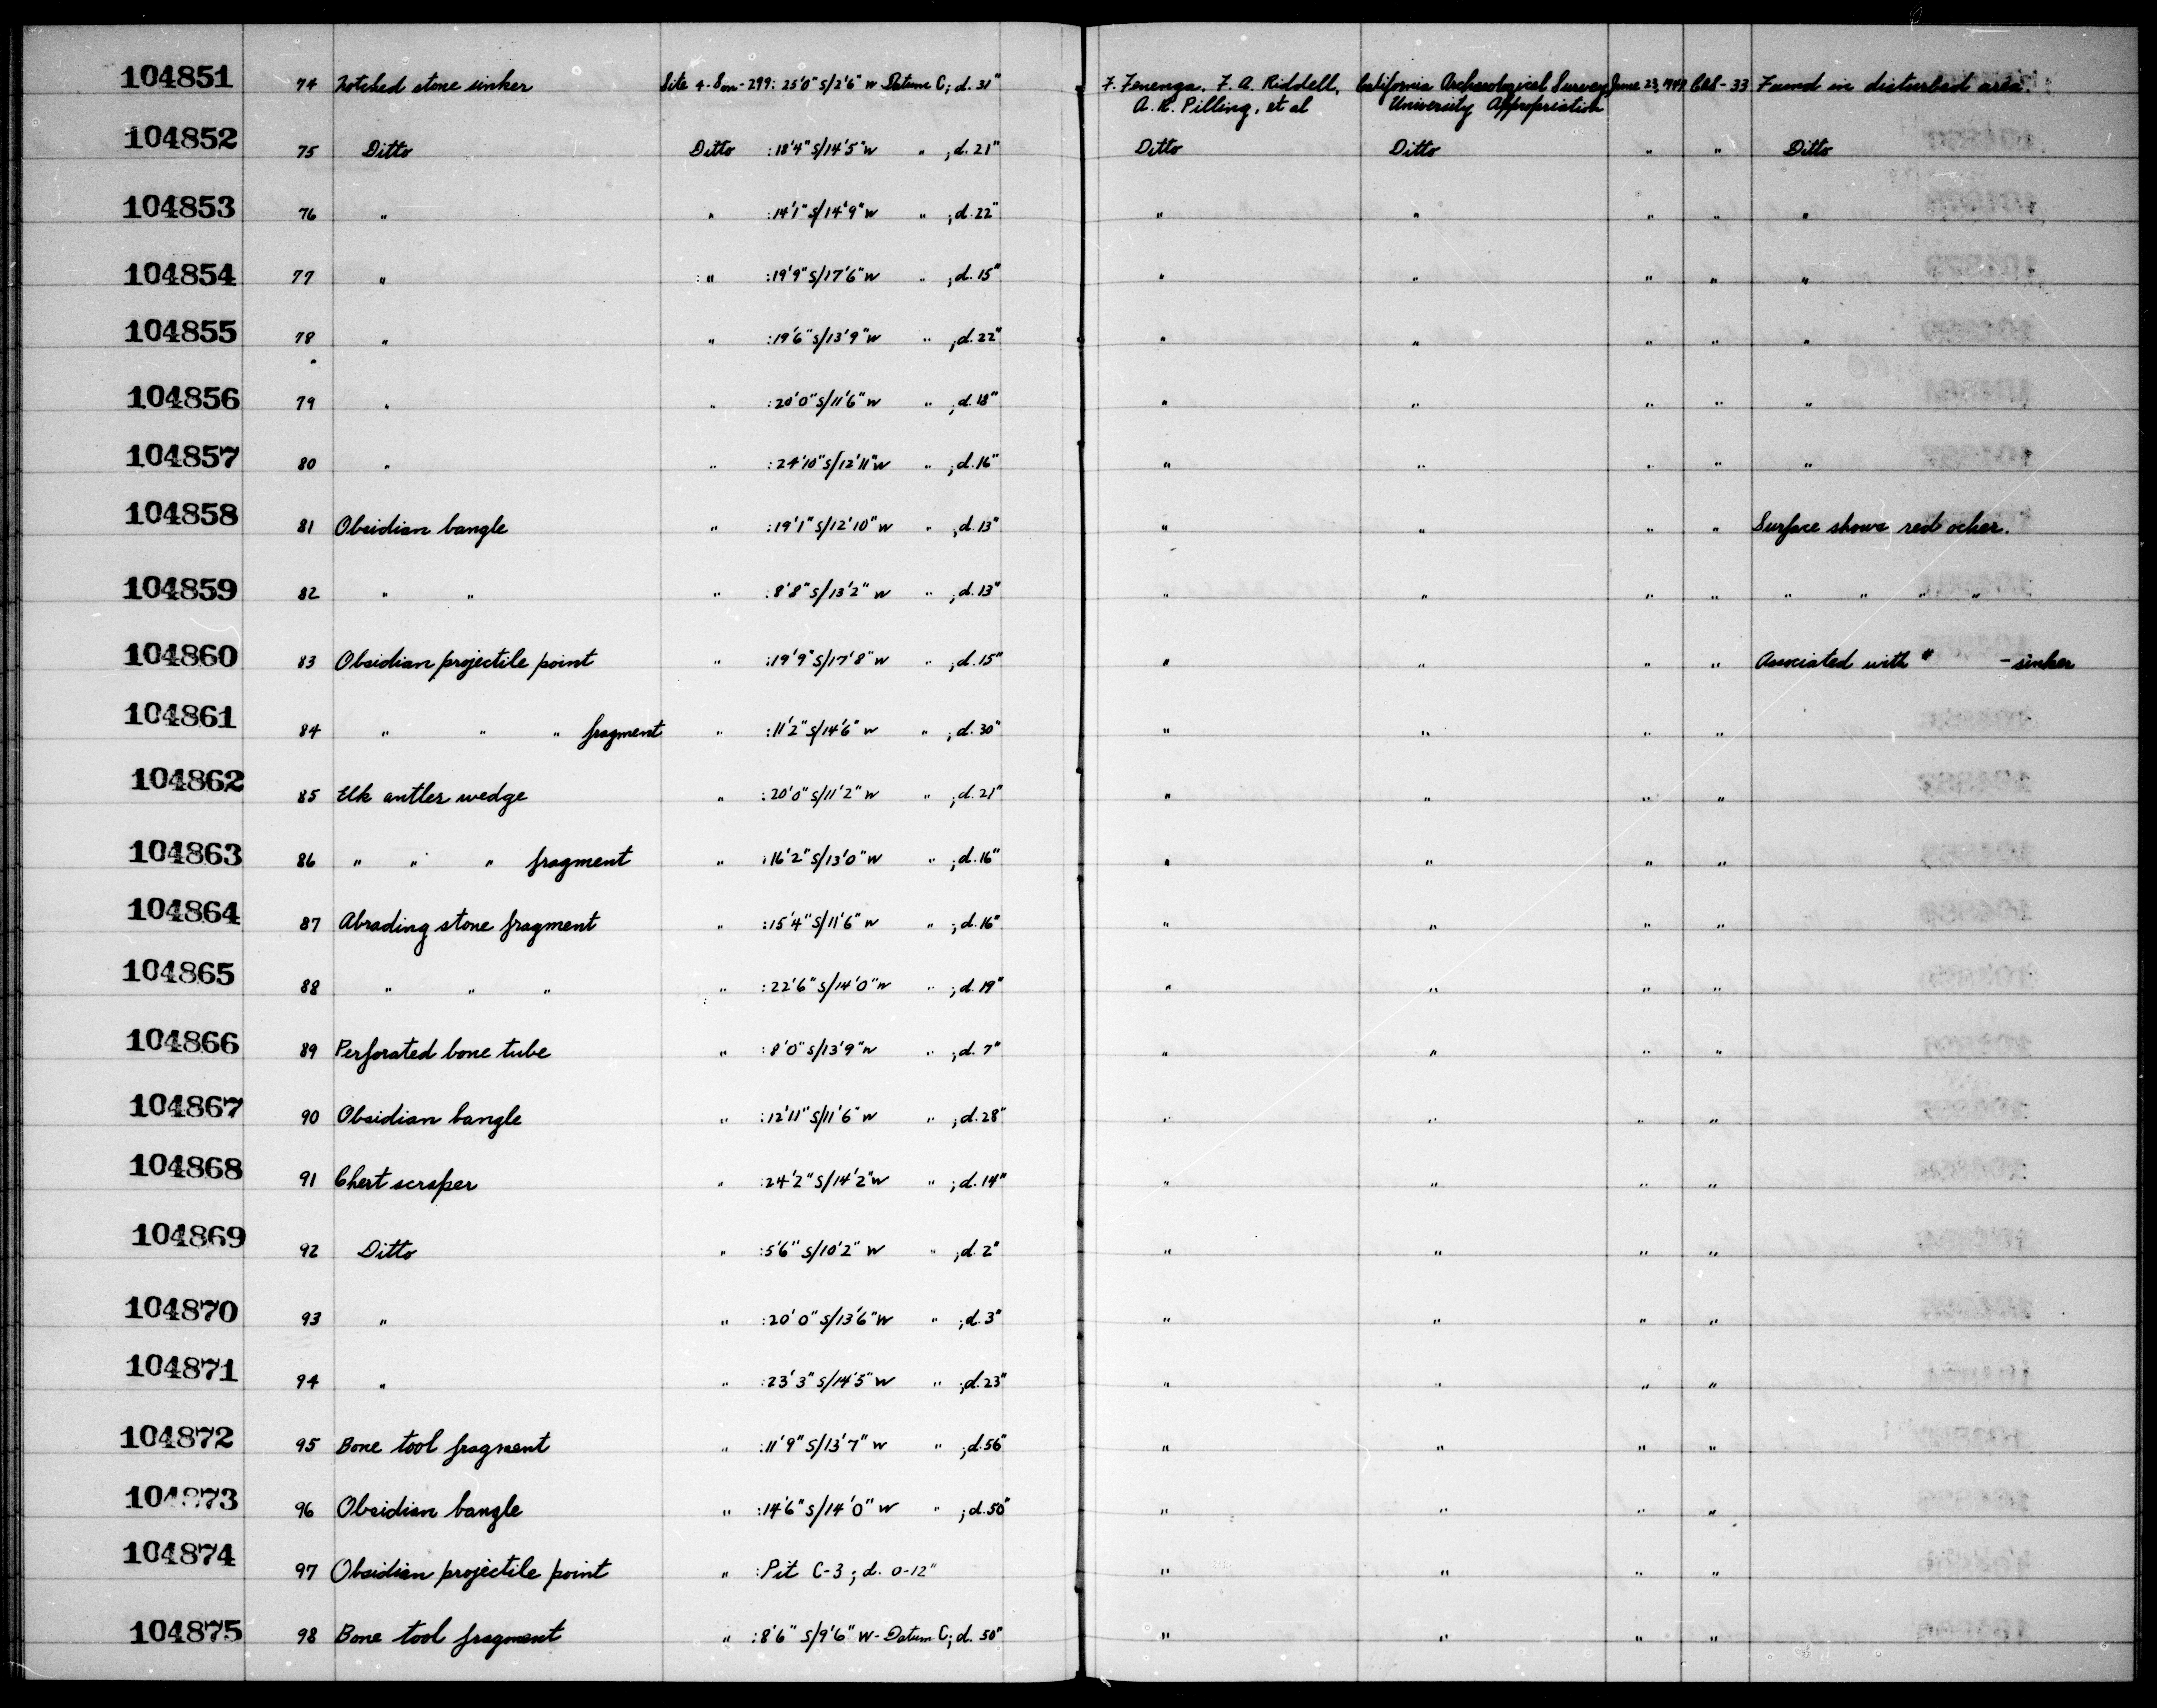 104851 74 Notched stone sinker Site 4-Son-299: 25'0" S/2'6" W Datum C; d. 31" F. Fenenga, F. A. Riddell, California Archaeological Survey June 23, 1949 CAS-33 Found in disturbed area.
A. R. Pilling, et al University Appropriation
104852 75 Ditto Ditto :18'4" S/14'5" W " ; d. 21" Ditto Ditto " " Ditto
104853 76 " " :14'1" S/14'9" W " ; d. 22" " " " " "
104854 77 " " :19'9" S/17'6" W " ; d. 15" " " " " "
104855 78 " " :19'6" S/13'9" W " ; d. 22" " " " " "
104856 79 " " :20'0" S/11'6" W " ; d. 18" " " " " "
104857 80 " " :24'10" S/12'11" W " ; d. 16" " " " " "
104858 81 Obsidian bangle " :19'1" S/12'10" W " ; d. 13" " " " " Surface shows red ocher.
104859 82 " " " :8'8" S/13'2" W " ; d. 13" " " " " " " " "
104860 83 Obsidian projectile point " :19'9" S/17'8" W " ; d. 15" " " " " Associated with # - sinker
104861 84 " " " fragment " :11'2" S/14'6" W " ; d. 30" " " " "
104862 85 Elk antler wedge " :20'0" S/11'2" W " ; d. 21" " " " "
104863 86 " " " fragment " :16'2" S/13'0" W " ; d. 16" " " " "
104864 87 Abrading stone fragment " :15'4" S/11'6" W " ; d. 16" " " " "
104865 88 " " " " :22'6" S/14'0" W " ; d. 19" " " " "
104866 89 Perforated bone tube " :8'0" S/13'9" W " ; d. 7" " " " "
104867 90 Obsidian bangle " :12'11" S/11'6" W " ; d. 28" " " " "
104868 91 Chert scraper " :24'2" S/14'2" W " ; d. 14" " " " "
104869 92 Ditto " :5'6" S/10'2" W " ; d. 2" " " " "
104870 93 " " :20'0" S/13'6" W " ; d. 3" " " " "
104871 94 " " :23'3" S/14'5" W " ; d. 23" " " " "
104872 95 Bone tool fragment " :11'9" S/13'7" W " ; d. 56" " " " "
104873 96 Obsidian bangle " :14'6" S/14'0" W " ; d. 50" " " " "
104874 97 Obsidian projectile point " :Pit C-3; d. 0-12" " " " "
104875 98 Bone tool fragment " :8'6" S/9'6" W- Datum C; d. 50" " " " "